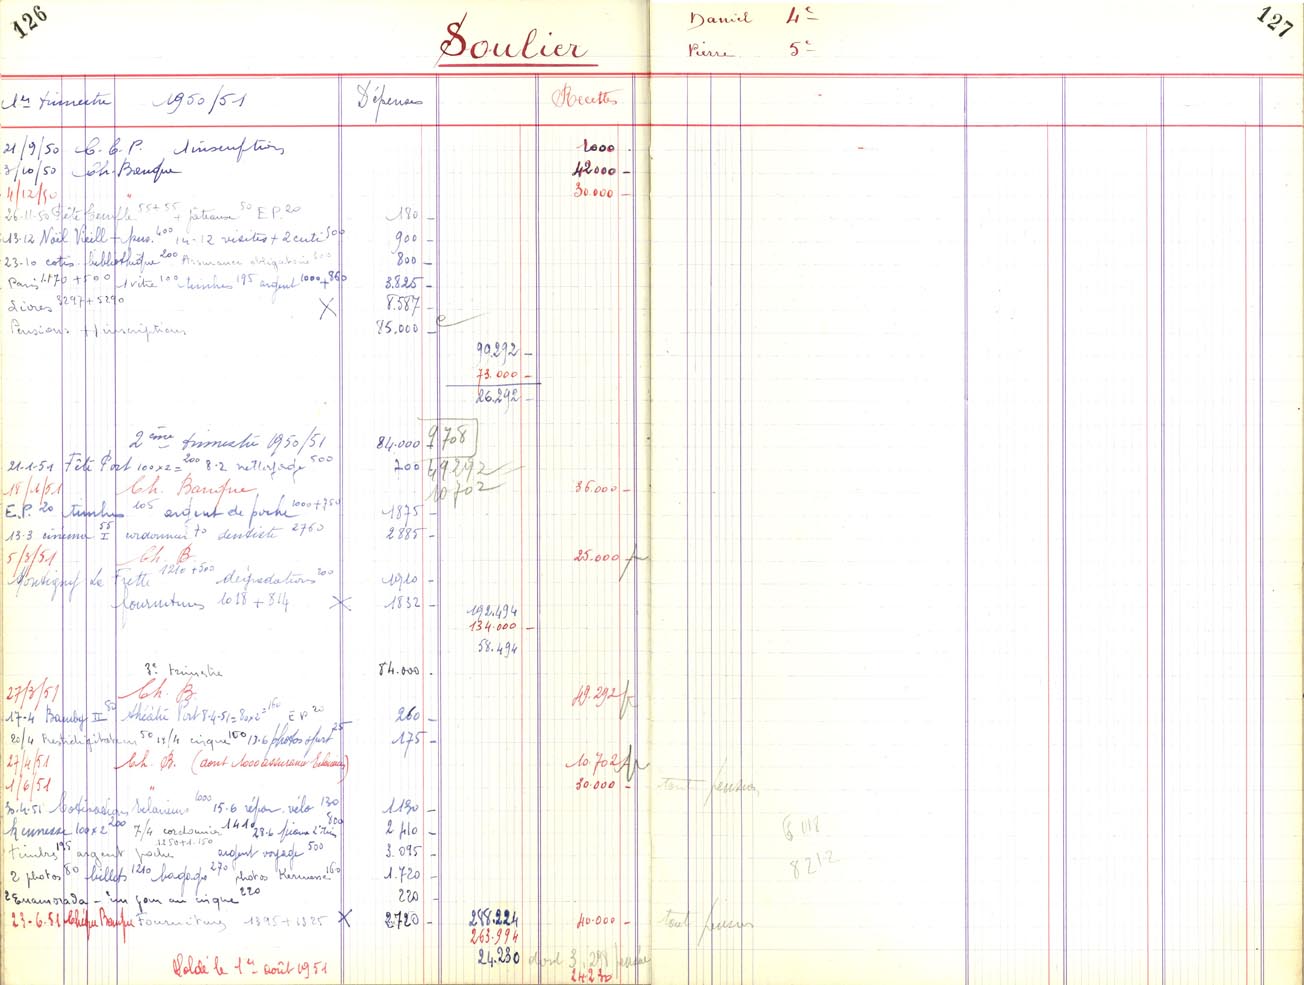 126
Soulier
Daniel 4e
Pierre 5e
127
1er trimestre 1950/51 Dépenses Recettes
21/9/50 C.C.P. 1 inscription 1000
3/10/50 Ch. Banque 42000 -
4/12/50 " 30.000 -
26-11-50 Fête 55+55 + gâteaux 50 E.P. 20 180 -
13-12 Noël Vieill 400 14-12 visites + 2 500 900 -
23-10 cotis. bibliothèque 200 Assurance obligatoire 600 800 -
Paris 1170 + 500 1 vitre 100 timbres 195 argent 1000 + 860 3.825 -
Livres 3297 + 5290 X 8.587 -
Pensions + 1 inscriptions 85.000 -
90.292 -
73.000 -
26.292 -
2ème trimestre 1950/51 84.000 9708
21-1-51 Fête Port 100x2= 200 8-2 nettoyage 500 700 49292
18/1/51 Ch. Banque 10702 36.000 -
E.P. 20 timbres 105 argent de poche 1000 + 750 1875 -
13-3 cinéma 55 I cordonnier 70 dentiste 2760 2885 -
5/3/51 Ch. B 25.000
Montigny La Frette 1210 + 500 dégradations 200 1910 -
fournitures 1018 + 814 X 1832 -
192.494
134.000 -
58.494
3e trimestre 84.000
27/3/51 Ch. B 49.292
17-4 Bamby II 80 théâtre Port 8-4-51 = 80x2= 160 E.P. 20 260 -
20/4 Prestidigitateur 50 19/4 cirque 100 13-6 photos sport 25 175 -
27/4/51 Ch. B. (dont 1000 assurance Eclaireurs) 10.702
1/6/51 " 30.000 - tout pension
30-4-51 Cotisations Eclaireurs 1000 15-6 répar. vélo 130 1130 -
Kermesse 100x2 200 7/4 cordonnier 1410 28-6 800 2410 -
timbres 195 argent poche 1250+1.150 argent voyage 500 3.095 -
2 photos 80 billets 1210 bagages 270 photos Kermesse 160 1.720 -
2 Enamorada - un jour au cirque 220 220 -
23-6-51 Chèque Banque Fournitures 1395 + 1325 X 2720 - 288.224 40.000 - tout pension
263.994
24.230
Soldé le 1er août 1951 24230
8212